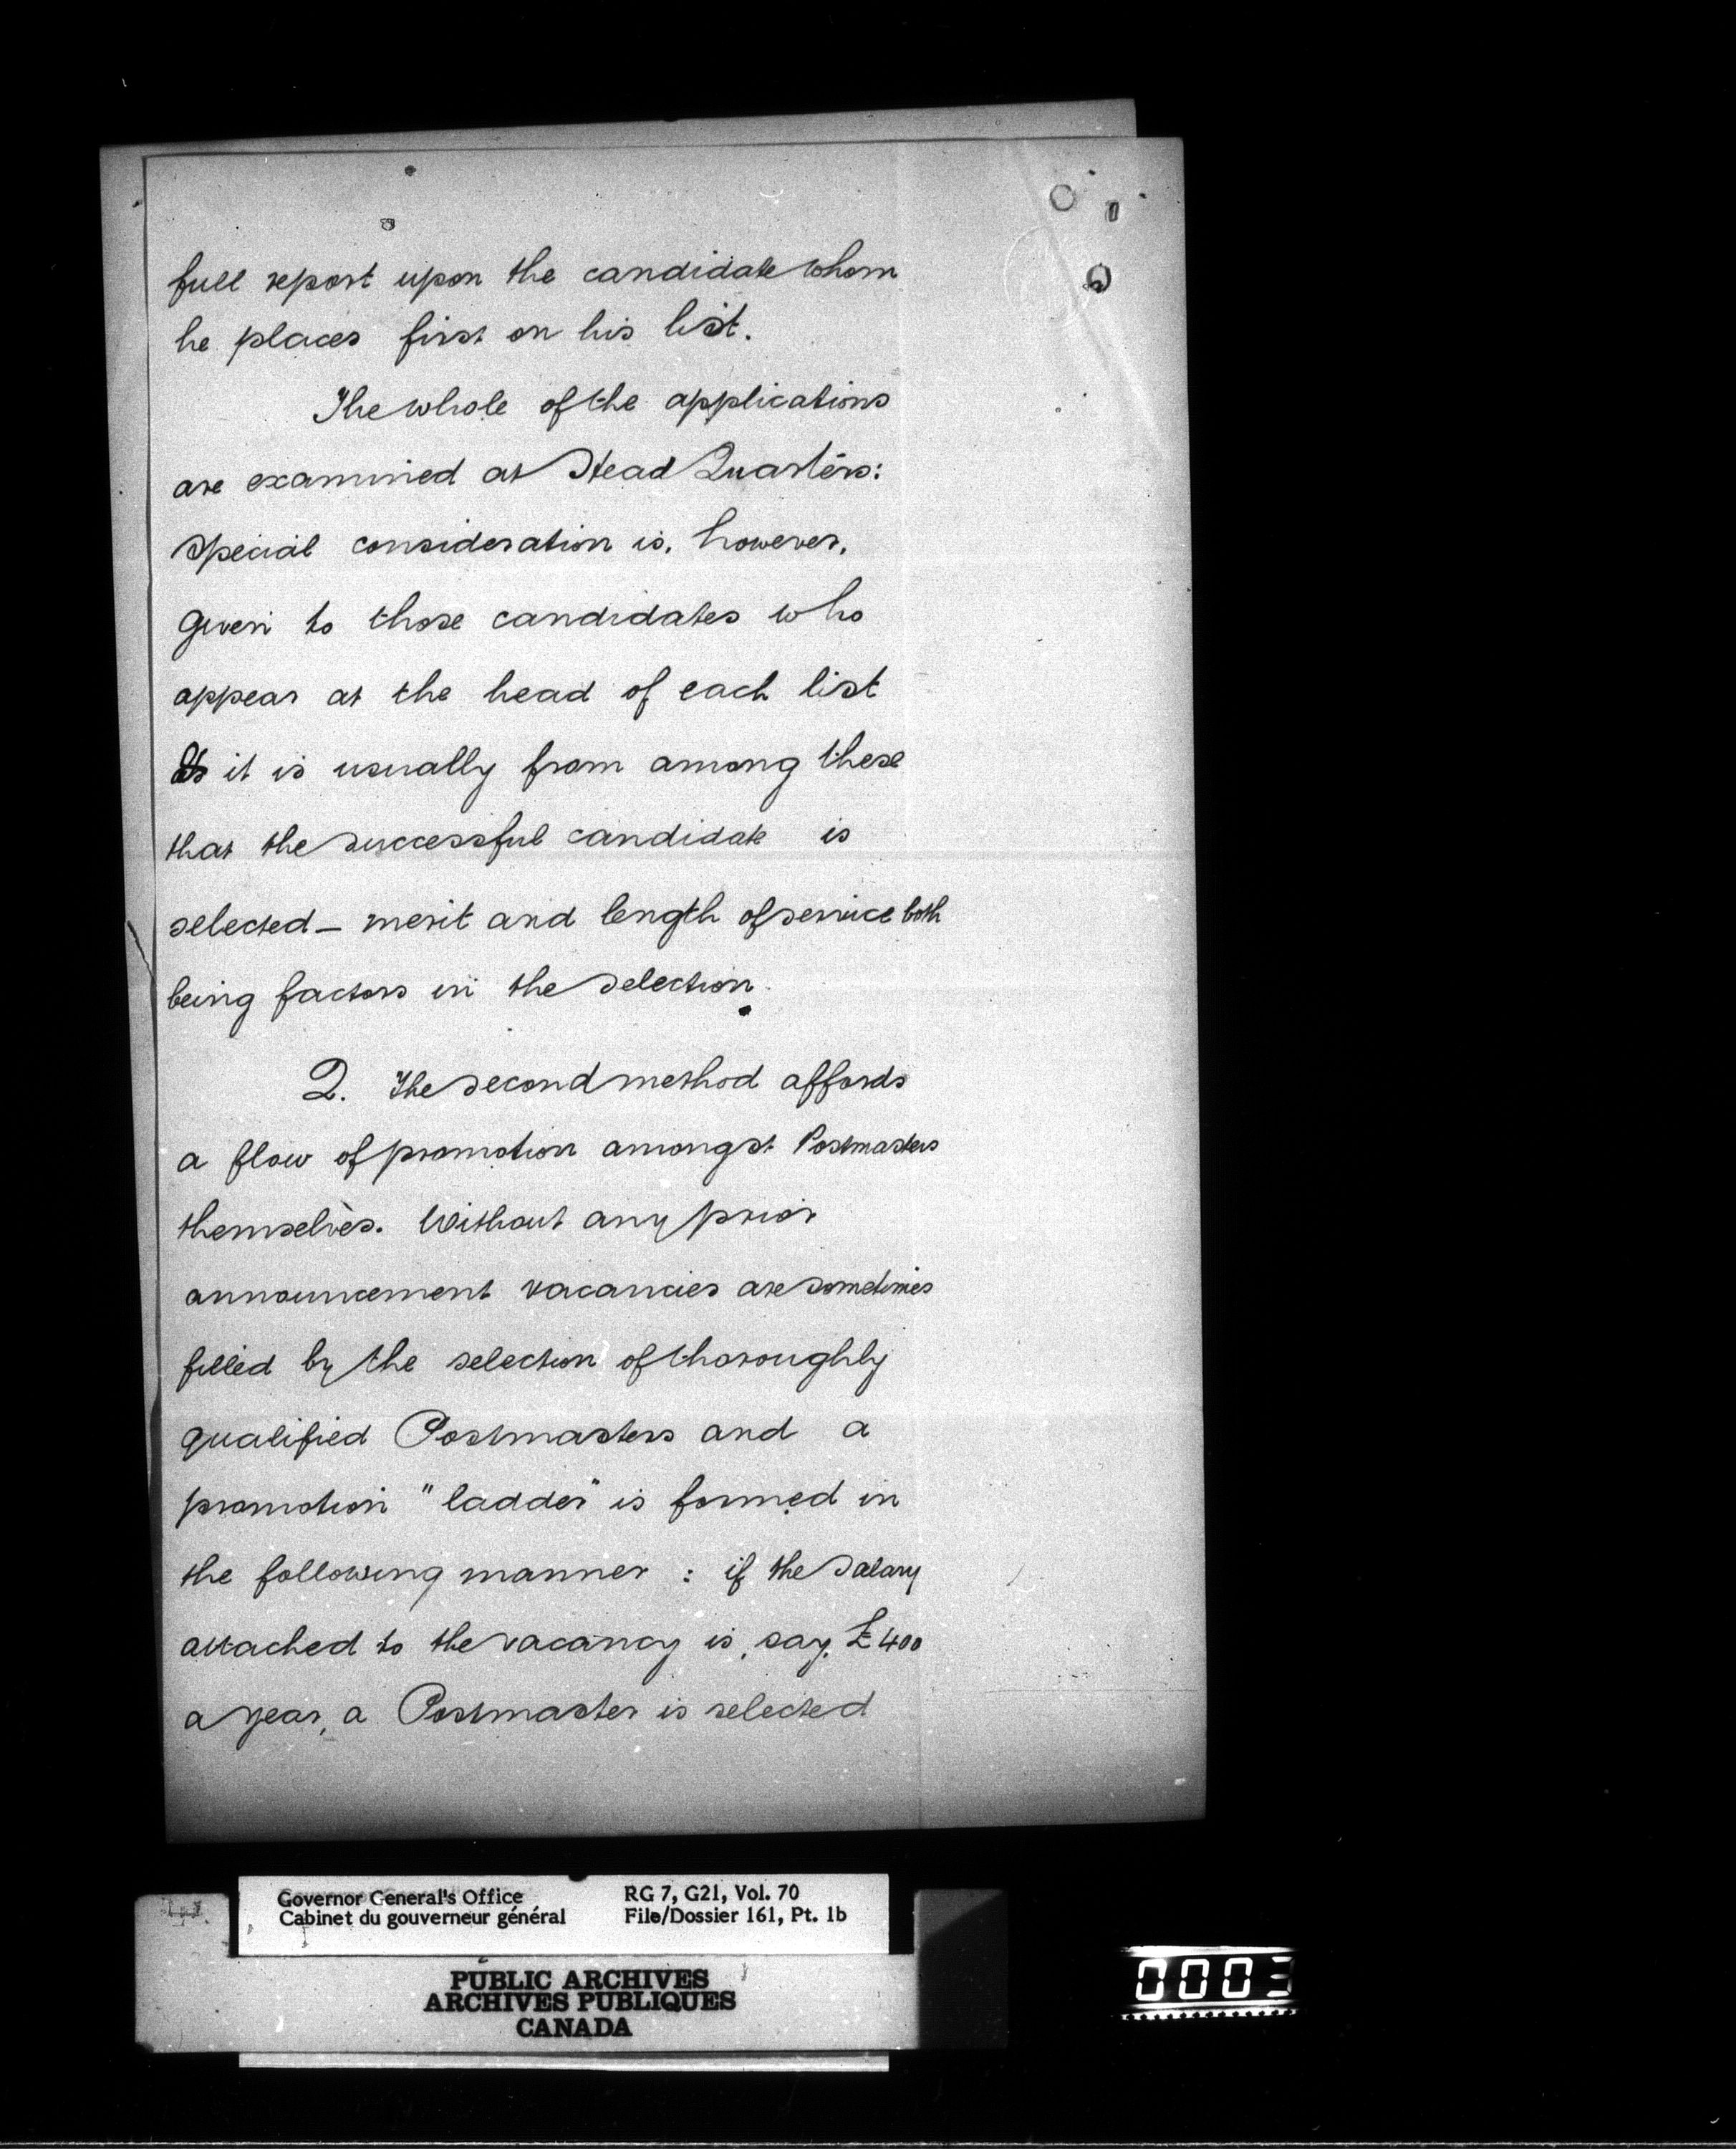 full report upon the candidate whom
he places first on his list.
The whole of the applications
are examined at Head Quarters:
special consideration is, however,
given to those candidates who
appear at the head of each list
as it is usually from among these
that the successful candidate is
selected – merit and length of service both
being factors in the selection.
2. The second method affords
a flow of promotion amongst Postmasters
themselves. Without any prior
announcement vacancies are sometimes
filled by the selection of thoroughly
qualified Postmasters and a
promotion "ladder" is formed in
the following manner : if the salary
attached to the vacancy is, say, £400
a year, a Postmaster is selected
Governor General's Office
Cabinet du gouverneur général
RG 7, G21, Vol. 70
File/Dossier 161, Pt. 1b
PUBLIC ARCHIVES
ARCHIVES PUBLIQUES
CANADA
0003